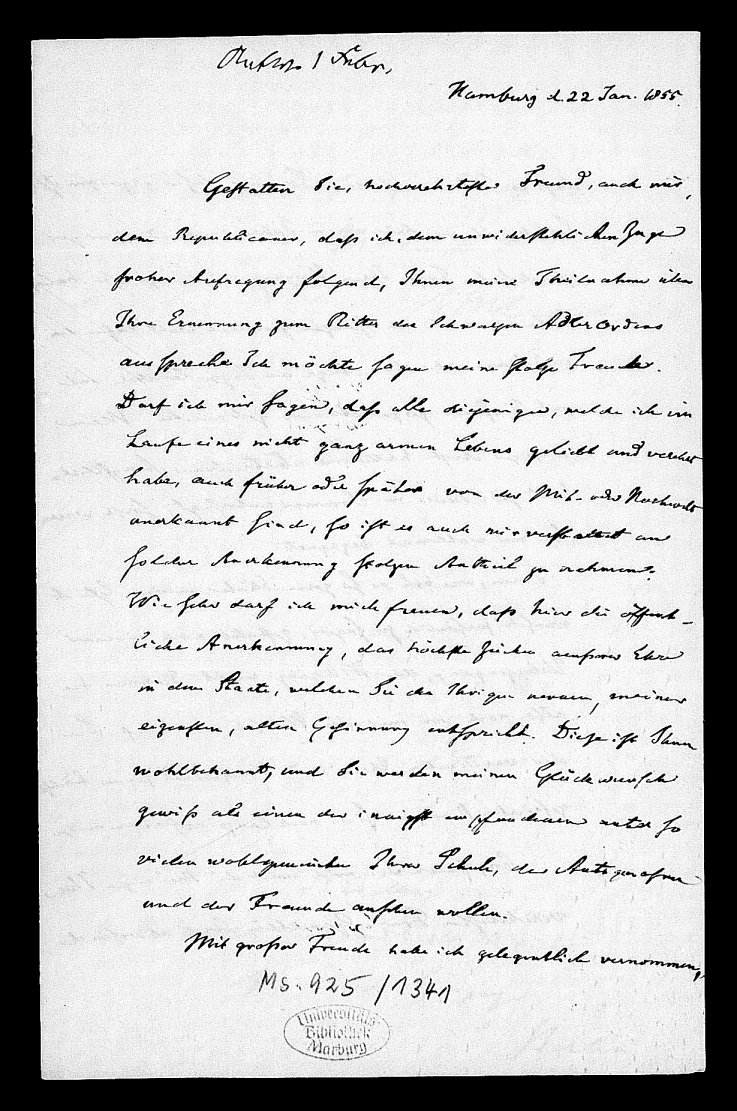 Hamburg d. 22 Jan. 1855.
Gestatten Sie, hochverehrtester Freund, auch mir,
dem Republicaner, daß ich, dem unwiderstehlichen Zuge
froher Aufregung folgend, Ihnen meine Theilnahme über
Ihre Ernennung zum Ritter des Schwarzen Adler Ordens
ausspreche. Ich möchte sagen meine stolze Freude.
Darf ich mir sagen, daß alle diejenigen, welche ich im
Laufe eines nicht ganz armen Lebens geliebt und verehrt
habe, auch früher oder später von der Mit- oder Nachwelt
anerkannt sind, so ist es auch mir verstattet an
solcher Anerkennung stolzen Antheil zu nehmen.
Wie sehr darf ich mich freuen, daß hier die öffent-
liche Anerkennung, das höchste Zeichen äußerer Ehre
in dem Staate, welchen Sie den Ihrigen nennen, meiner
eigensten, alten Gesinnung entspricht. Diese ist Ihnen
wohlbekannt, und Sie werden meinen Glückwunsch
gewiß als einen der innigst empfundenen unter so
vielen Ihrer Schule, der Zeitgenossen
und der Freunde ansehen wollen.
Mit großer Freude habe ich gelegentlich vernommen,
Ms. 925/1341
Universitäts
Bibliothek
Marburg